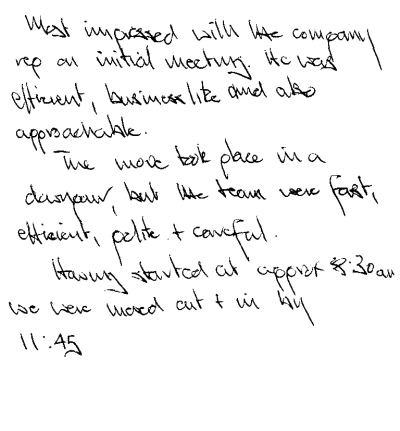 Most impressed with the company
rep on initial meeting. He was
efficient, businesslike and also
approachable.
The move took place in a
downpour, but the team were fast,
efficient, polite + careful.
Having started at approx 8:30am
we were moved out + in by
11:45